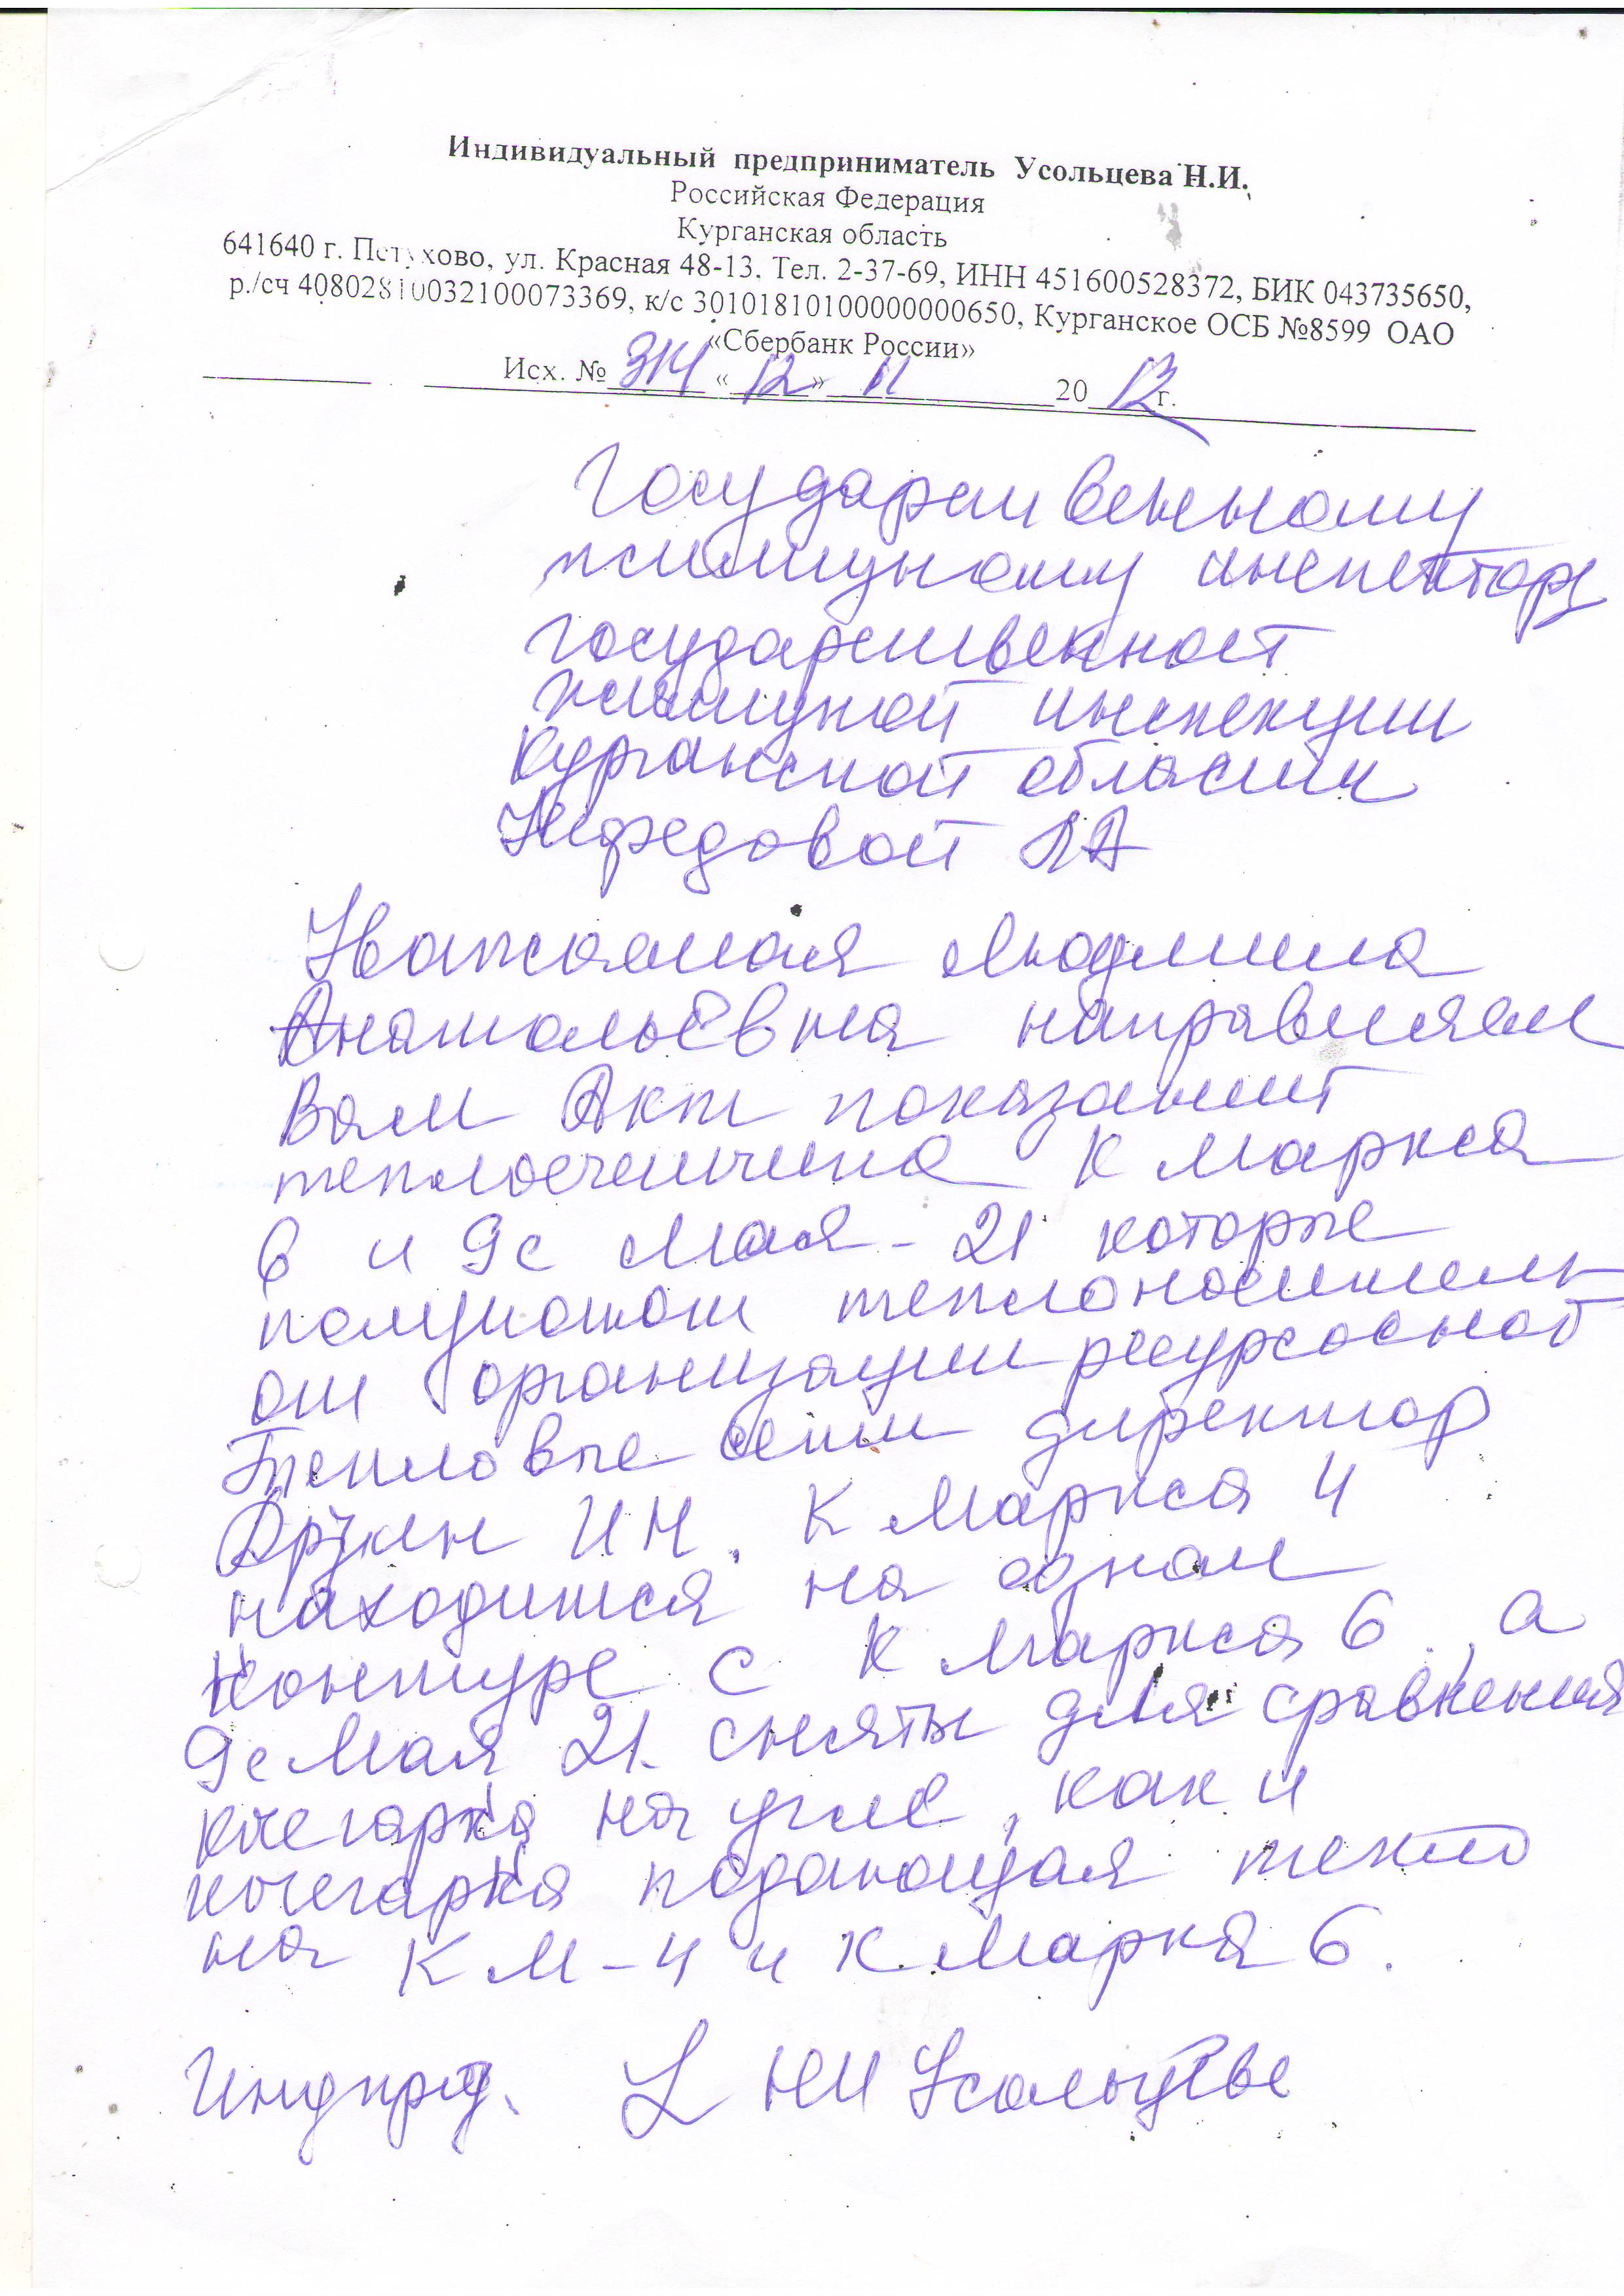 Индивидуальный предприниматель Усольцева Н.И.
Российская Федерация
Курганская область
641640 г. Петухово, ул. Красная 48-13. Тел. 2-37-69, ИНН 451600528372, БИК 043735650,
р./сч 40802810032100073369, к/с 30101810100000000650, Курганское ОСБ №8599 ОАО
«Сбербанк России»
Исх. № 314 « 12 » 11 20 12 г.
Государственному
жилищному инспектору
государственной
жилищной инспекции
Курганской области
Нефедовой ЛА
Уважаемая Людмила
Анатольевна направляем
Вам Акт показаний
теплосчетчика К Маркса
6 и 9е Мая - 21 которые
получают теплоноситель
от организации ресурсосной
Тепловые сети директор
ИН. К Маркса 4
находится на одном
контуре с К Маркса 6, а
9е Мая 21. сняты для сравнения
кочегарка на угле, как и
кочегарка подающая тепло
на КМ-4 и К Маркса 6.
Индпред. НИ Усольцева